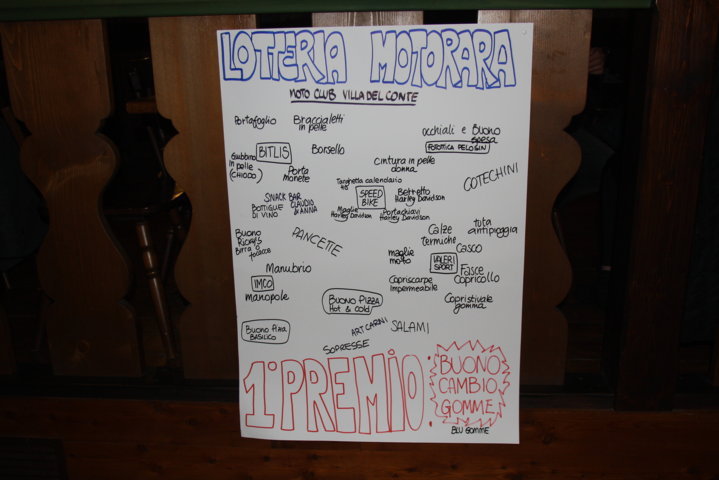 LOTTERIA MOTORARA
MOTO CLUB VILLA DEL CONTE
Portafoglio
Braccialetti
in pelle
occhiali e Buono
spesa
FOTOTTICA PELOSIN
Giubbino
in pelle
(CHIODO)
BITLIS
Borsello
Porta
monete
cintura in pelle
donna
COTECHINI
Targhetta calendario
SPEED
BIKE
Berretto
Harley Davidson
Maglie
Harley Davidson
Portachiavi
Harley Davidson
SNACK BAR
CLAUDIO
& ANNA
BOTTIGLIE
DI VINO
Buono
Birra o
focacce
PANCETTE
Calze
termiche
tuta
antipioggia
maglie
moto
VALERI
SPORT
Casco
Fasce
Capricollo
Manubrio
IMCO
manopole
BUONO PIZZA
Hot & Cold
Copriscarpe
impermeabile
Copristivale
gomma
Buono Pizza
BASILICO
ART CARNI
SALAMI
SOPRESSE
1° PREMIO:
BUONO
CAMBIO
GOMME
BLU GOMME